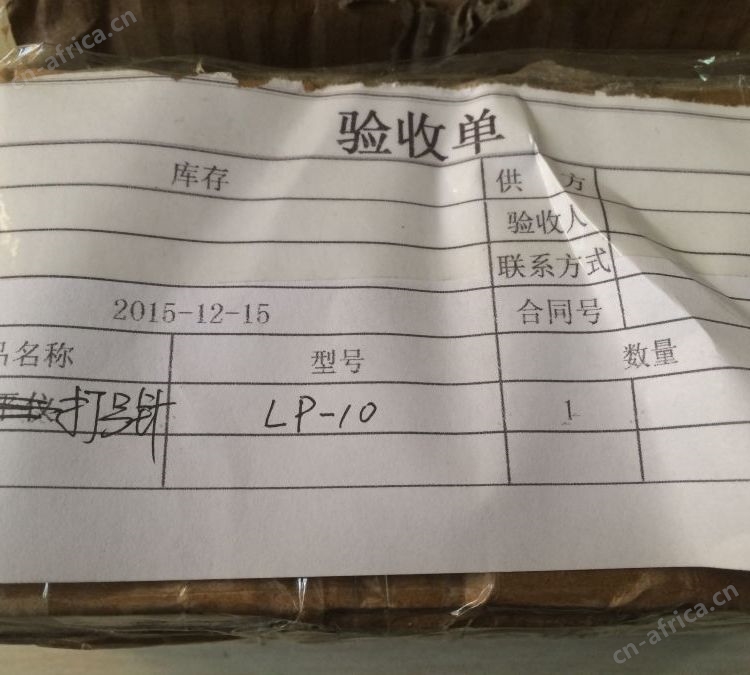 验收单
库存 供 方
验收人
联系方式
2015-12-15 合同号
品名称 型号 数量
打号针 LP-10 1
cn-africa.cn